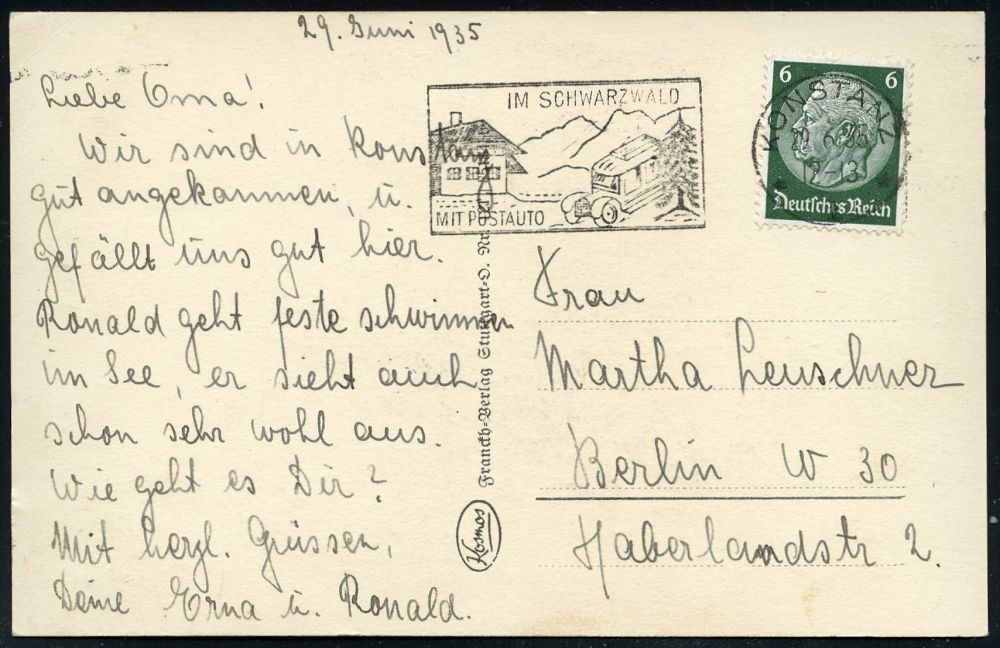 29. Juni 1935
Liebe Oma!
Wir sind in Konstanz
gut angekommen, u.
gefällt uns gut hier.
Ronald geht feste schwimmen
im See, er sieht auch
schon sehr wohl aus.
Wie geht es Dir?
Mit herzl. Grüssen,
Deine Erna u. Ronald.
IM SCHWARZWALD
MIT POSTAUTO
Franckh-Verlag Stuttgart-O. Nr.
Kosmos
6 6
Deutsches Reich
KONSTANZ
6.35
12-13
Frau
Martha Leuschner
Berlin W 30
Haberlandstr 2.